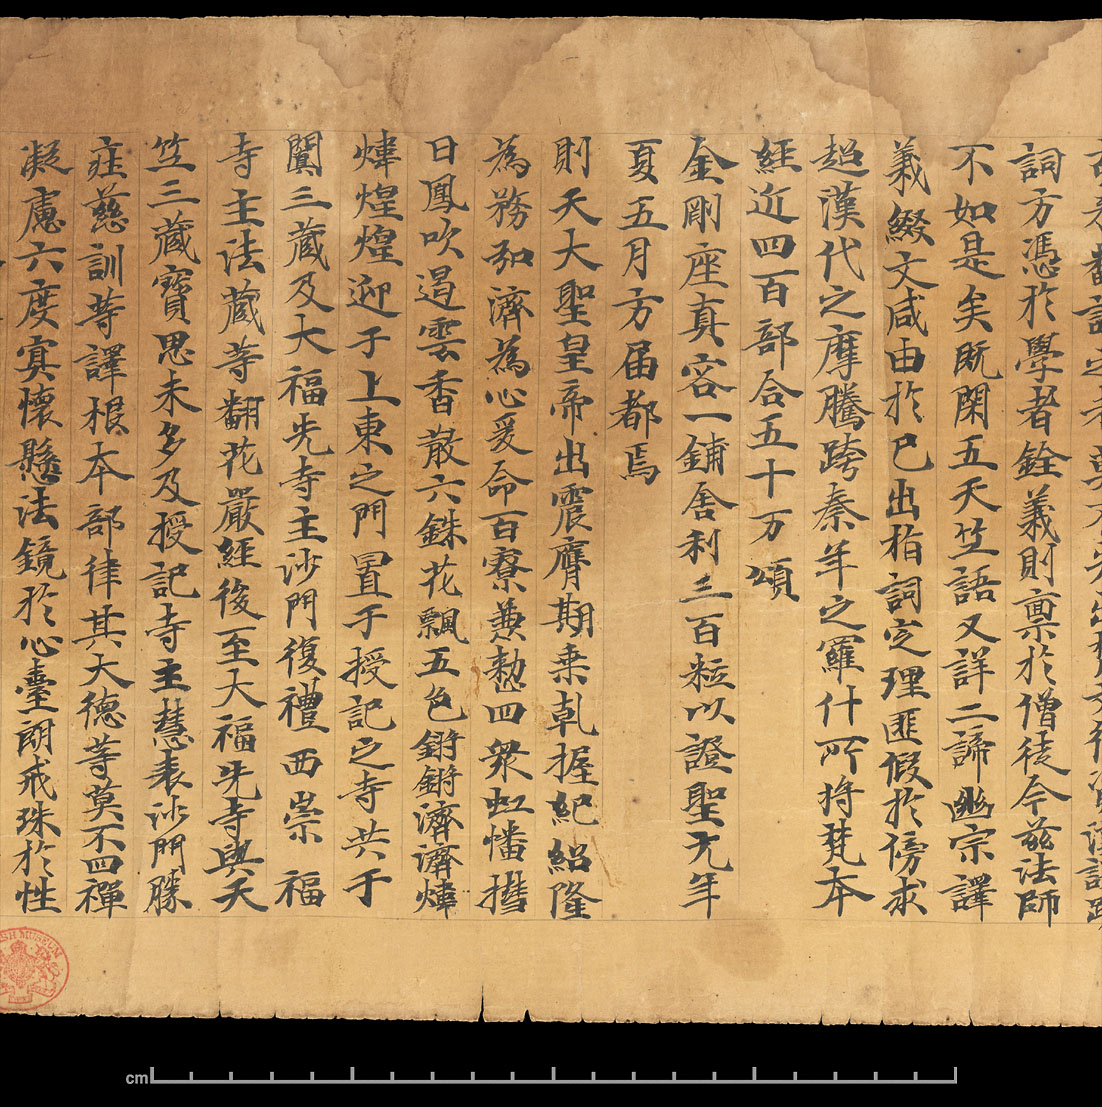 詞方憑於學者詮義則稟於僧徒今茲法師
不如是矣既閑五天竺語又詳二諦幽宗譯
義綴文咸由於己出指詞定理匪假於傍求
超漢代之摩騰跨秦年之羅什所將梵本
經近四百部合五十万頌
金剛座真容一鋪舍利三百粒以證聖元年
夏五月方届都焉
則天大聖皇帝出震膺期乗乹握紀紹隆
為務弘濟為心爰命百寮兼勑四衆虹幡㩗
日鳳吹遏雲香散六銖花飄五色鏘鏘濟濟煒
煒煌煌迎于上東之門置于授記之寺共于
闐三藏及大福先寺主沙門復禮西崇福
寺主法藏等翻花嚴經後至大福先寺與天
竺三藏寶思末多及授記寺主慧表沙門勝
莊慈訓等譯根本部律其大德等莫不四禪
凝慮六度冥懷懸法鏡於心臺朗戒珠於性